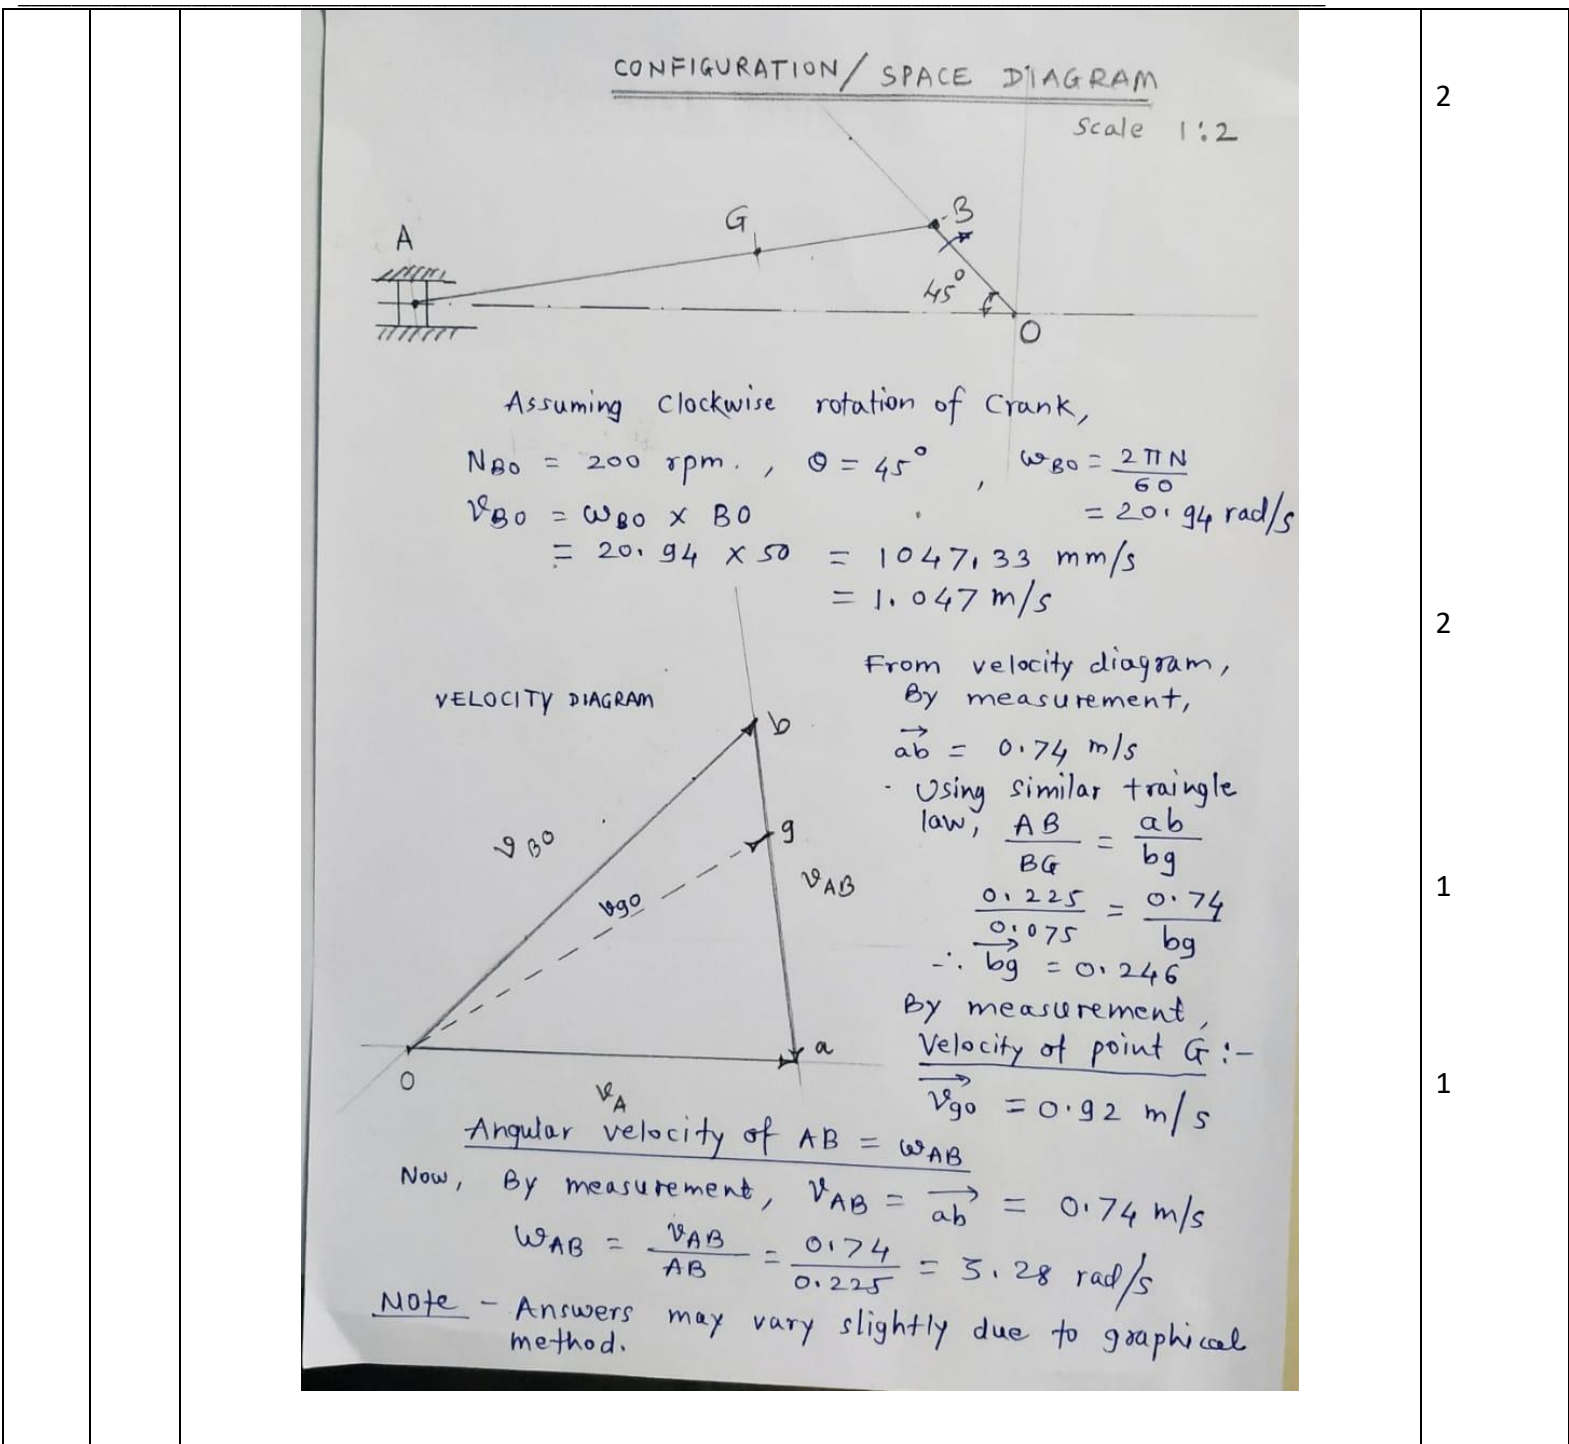 CONFIGURATION / SPACE DIAGRAM
Scale 1:2
2
A
G
B
45°
O
Assuming Clockwise rotation of Crank,
N_BO = 200 rpm. , θ = 45° , ω_BO = 2πN/60
= 20.94 rad/s
v_BO = ω_BO × BO
= 20.94 × 50 = 1047.33 mm/s
= 1.047 m/s
2
VELOCITY DIAGRAM
b
v_BO
g
v_AB
vgo
o
a
v_A
From velocity diagram,
By measurement,
ab = 0.74 m/s
Using similar traingle
law, AB/BG = ab/bg
0.225/0.075 = 0.74/bg
∴ bg = 0.246
1
By measurement,
Velocity of point G :-
Vgo = 0.92 m/s
1
Angular velocity of AB = ω_AB
Now, By measurement, V_AB = ab = 0.74 m/s
ω_AB = v_AB/AB = 0.74/0.225 = 3.28 rad/s
Note - Answers may vary slightly due to graphical
method.